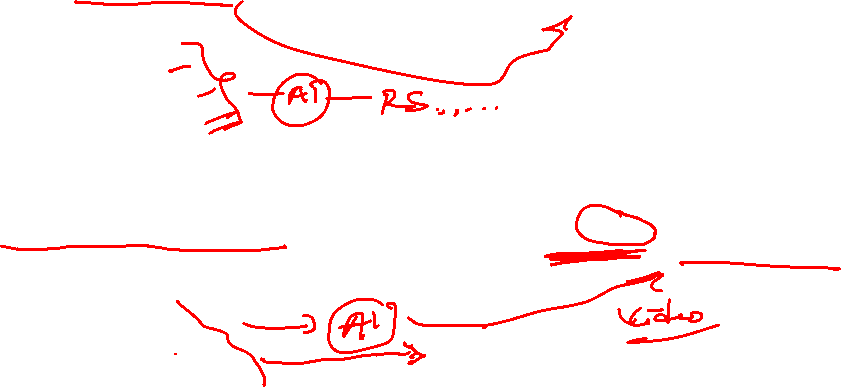 AI RS......
AI
video